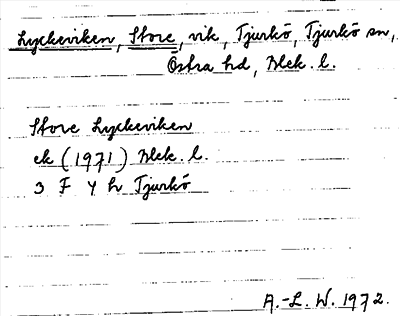 Lyckeviken, Store, vik, Tjurkö, Tjurkö sn,
Östra hd, Blek. l.
Store Lyckeviken
ek (1971) Blek. l.
3 F 4 h Tjurkö
A.-L. W. 1972.